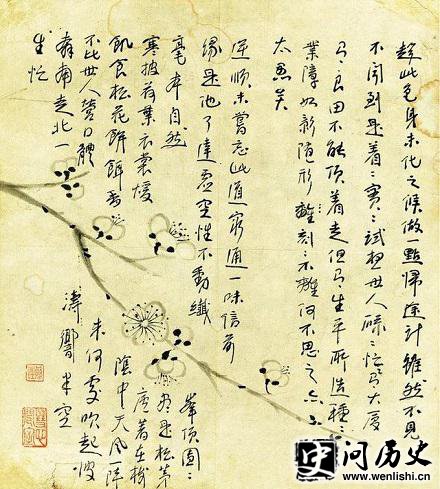 趁此色身未化之候做一點歸途計雖然不見
不聞到是着〻實〻試想世人碌〻忙〻爲大厦
爲良田不能頂着走但爲生平所造種〻
業障如影隨形難刻〻不離何不思之
太愚矣
逆順未嘗忘此道窮通一味信前
緣是他了達虛空性不動纖
毫本自然
寒披荷葉衣裳煖
飢食松花餅餌香
不比世人營口體
奔南走北一
生忙
峯頂團〻
松茅
屋着在
陰中天風陣
來何處吹起波
濤響半空
问历史
www.wenlishi.cn